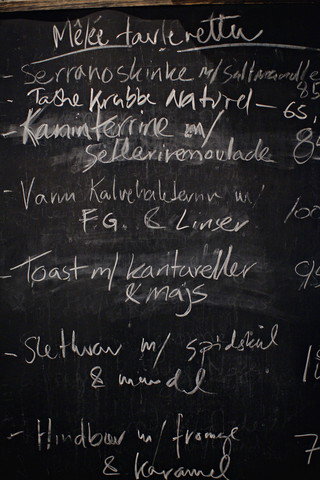 Mêlée tavleretter
- Serranoskinke m/ Saltmandler
85
- Taske Krabbe Naturel - 65,
- Kaninterrine m/
Selleriremoulade 85
- Varm Kalvehaleterrin m/
F.G. & Linser 100
- Toast m/ Kantareller
& majs 95
- Slethvar m/ spidskål
& mandel
- Hindbær m/ fromage
& karamel 7